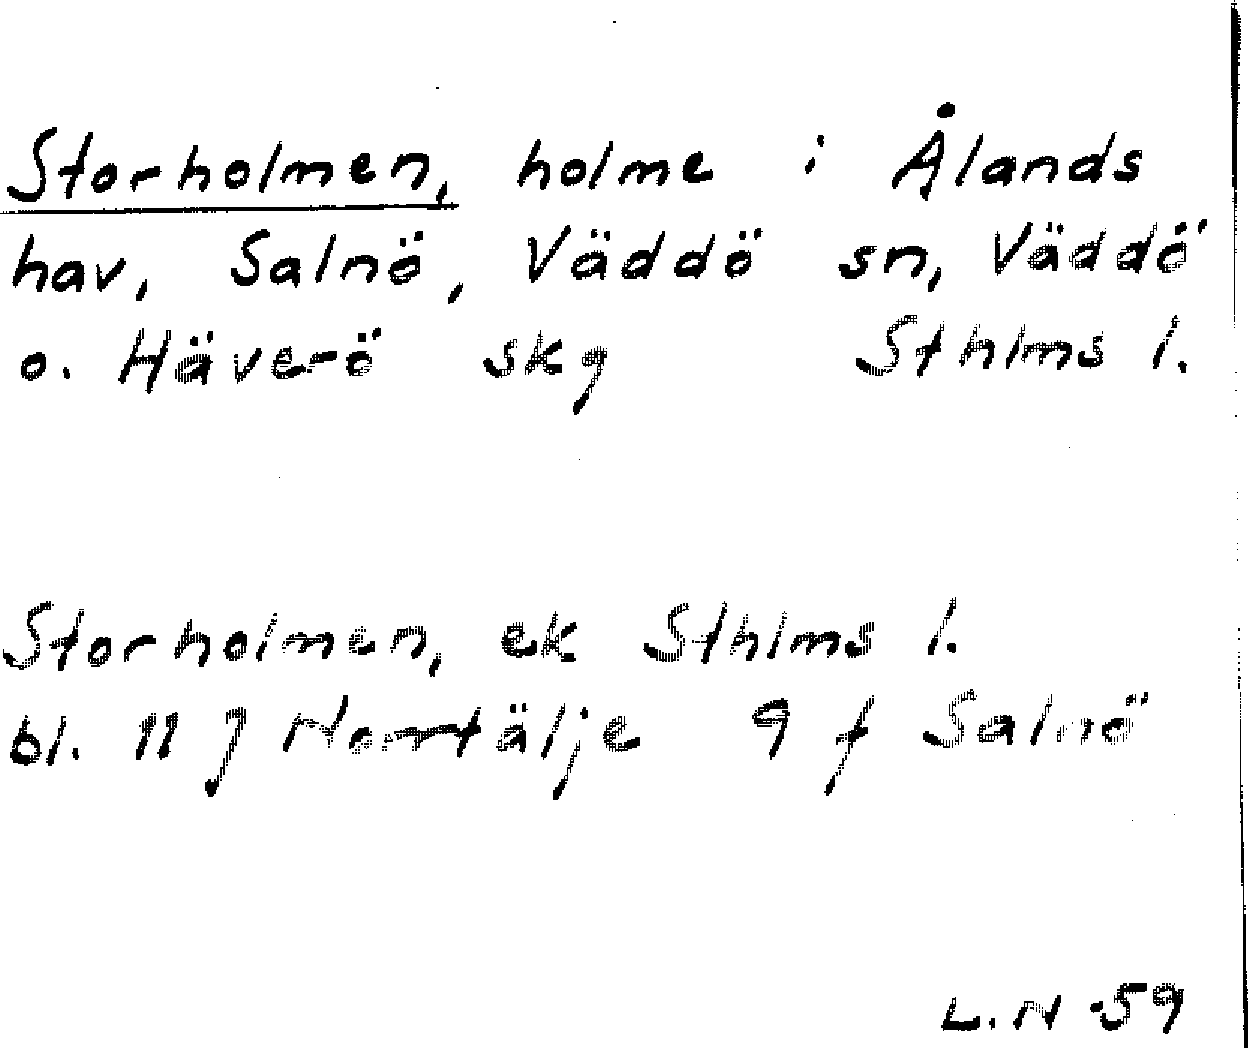 Storholmen, holme i Ålands
hav, Salnö, Väddö sn, Väddö
o. Häverö skg Sthlms l.
Storholmen, ek Sthlms l.
bl. 11 J Norrtälje 9 f Salnö
L. N -59